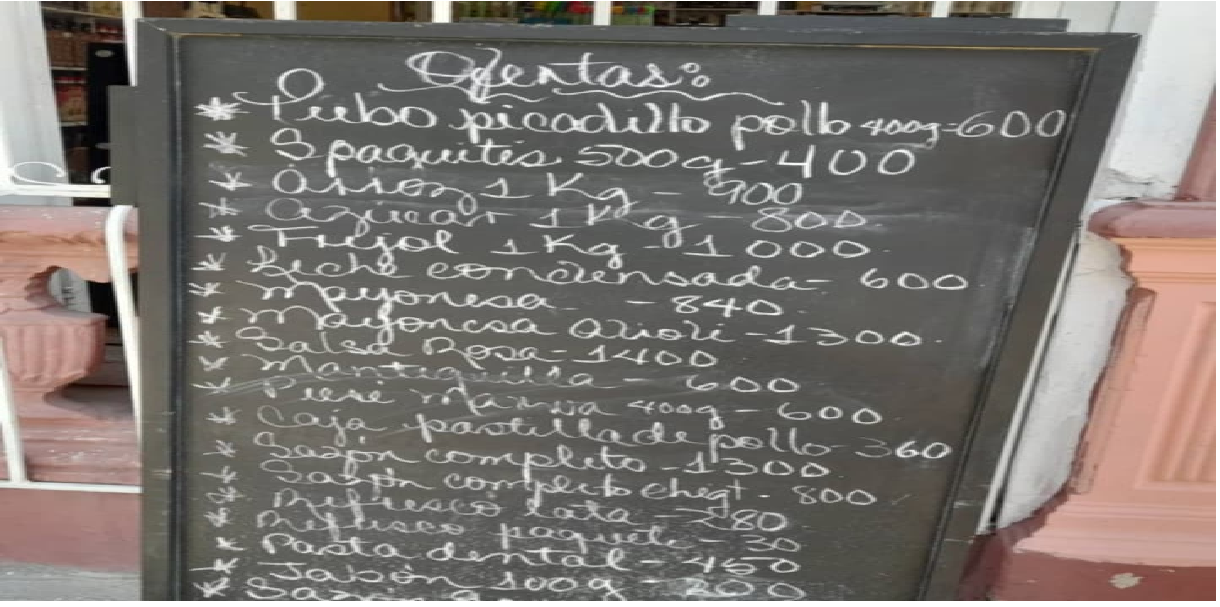 Ofertas:
* Tubo picadillo pollo 400g=600
* Spaguitis 500g-400
* Arroz 1 Kg - 900
* Azúcar 1 Kg - 800
* Frijol 1 Kg - 1000
* Leche condensada - 600
* Mayonesa - 840
* Mayonesa Arioli - 1300.
* Salsa Rosa - 1400
* Mantequilla - 600
* Pure 400g - 600
* Caja pastilla de pollo - 360
* Sazón completo - 1300
* Sazón completo cheq - 800
* Refresco lata - 280
* Refresco paquete - 30
* Pasta dental - 450
* Jabón 100g - 200